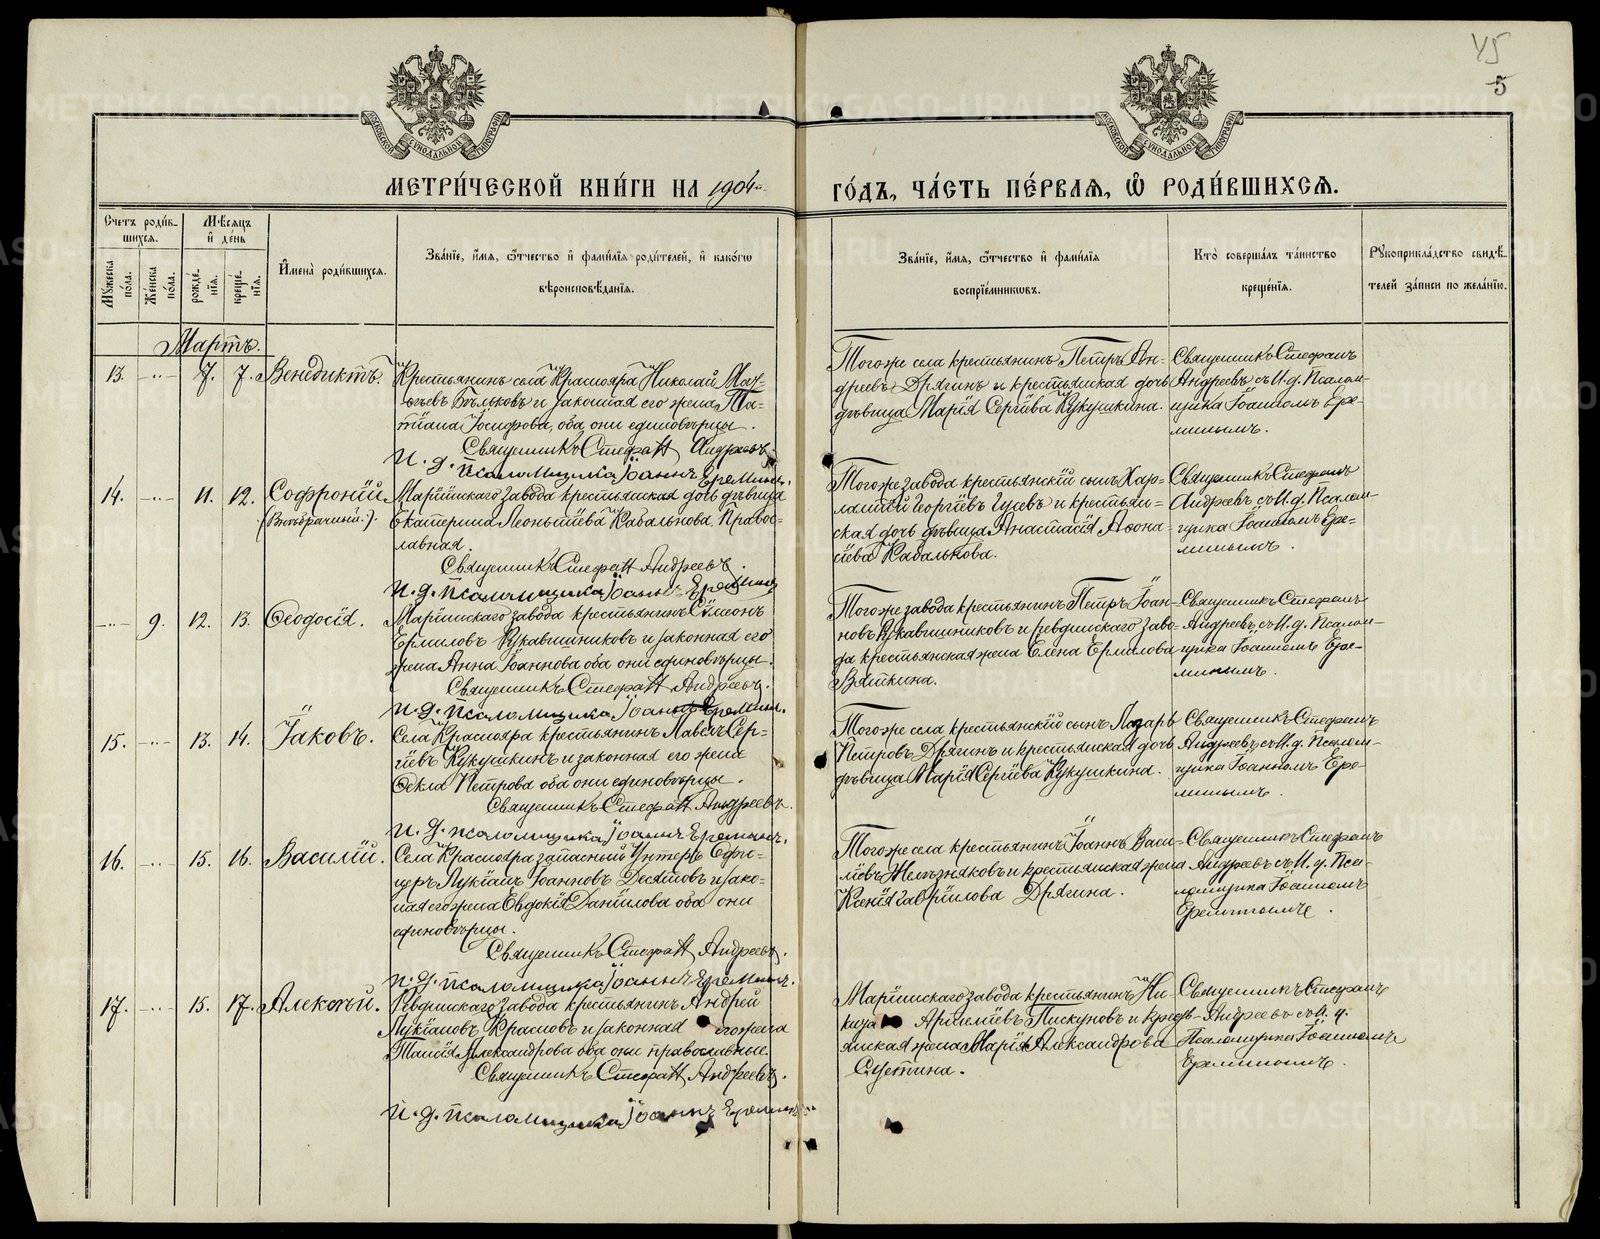 45
5
МЕТРИ́ЧЕСКОЙ КНИ́ГИ НА 1904
ГО́ДЪ, ЧА́СТЬ ПЕ́РВАЯ, Ѡ҆ РОДИ́ВШИХСЯ.
Счетъ роди́в-
шихся.
Мѣсяцъ
и҆ де́нь
Мꙋжеска
по́ла.
Же́нска
по́ла.
рожде́-
нїя.
креще́-
нїя.
И҆мена̀ роди́вшихся.
Зва́нїе, и҆́мя, ѻ҆́тчество и҆ фами́лїя роди́телей, и҆ како́гѡ
вѣроисповѣ́данїя.
Зва́нїе, и҆́мя, ѻ҆́тчество и҆ фами́лїя
воспрїе́мникѡвъ.
Кто̀ соверша́лъ та́инство
креще́нїя.
Рꙋкоприкла́дство свидѣ́-
телей за́писи по жела́нїю.
Мартъ.
13. -"- 7. 7. Венедиктъ.
Крестьянинъ села Краснояра Николай Мат-
ѳѣевъ Бѣльковъ и законная его жена Та-
тіана Іосифова, оба они единовѣрцы.
Священникъ Стефанъ Андреевъ
И. д. псаломщика Іоаннъ Ереминъ.
Тогоже села крестьянинъ Петръ Ан-
дреевъ Дрягинъ и крестьянская дочь
дѣвица Марія Сергіева Кукушкина.
Священникъ Стефанъ
Андреевъ съ И. д. Псалом-
щика Іоанномъ Ере-
минымъ.
14. -"- 11. 12. Софроній
(Внѣбрачный.).
Маріинскаго завода крестьянская дочь дѣвица
Екатерина Леонтіева Кабалькова. Право-
славная.
Священникъ Стефанъ Андреевъ.
И. д. псаломщика Іоаннъ Ереминъ
Тогоже завода крестьянскій сынъ Хар-
лампій Георгіевъ Гусевъ и крестьян-
ская дочь дѣвица Анастасія Аѳона-
сіева Кабалькова.
Священникъ Стефанъ
Андреевъ съ И. д. Псалом-
щика Іоанномъ Ере-
минымъ.
-"- 9. 12. 13. Ѳеодосія.
Маріинскаго завода крестьянинъ Сѵмеонъ
Ермиловъ Рукавишниковъ и законная его
жена Анна Іоаннова оба они единовѣрцы.
Священникъ Стефанъ Андреевъ.
И. д. псаломщика Іоаннъ Ереминъ.
Тогоже завода крестьянинъ Петръ Іоан-
новъ Рукавишниковъ и Ревдинскаго заво-
да крестьянская жена Елена Ермилова
Вяткина.
Священникъ Стефанъ
Андреевъ съ И. д. Псалом-
щика Іоанномъ Ере-
минымъ.
15. -"- 13. 14. Іаковъ.
Села Краснояра крестьянинъ Павелъ Сер-
гіевъ Кукушкинъ и законная его жена
Ѳекла Петрова оба они единовѣрцы.
Священникъ Стефанъ Андреевъ.
И. д. псаломщика Іоаннъ Ереминъ.
Тогоже села крестьянскій сынъ Лазарь
Петровъ Дрягинъ и крестьянская дочь
дѣвица Марія Сергіева Кукушкина.
Священникъ Стефанъ
Андреевъ съ И. д. Псалом-
щика Іоанномъ Ере-
минымъ.
16. -"- 15. 16. Василій.
Села Краснояра запасный Унтеръ Офи-
церъ Лукіанъ Іоанновъ Десятовъ и зако-
ная его жена Евдокія Даніилова оба они
единовѣрцы.
Священникъ Стефанъ Андреевъ.
И. д. псаломщика Іоаннъ Ереминъ.
Тогоже села крестьянинъ Іоаннъ Васи-
ліевъ Желѣзняковъ и крестьянская жена
Ксенія Гавріилова Дрягина.
Священникъ Стефанъ
Андреевъ съ И. д. Пса-
ломщика Іоанномъ
Ереминымъ.
17. -"- 15. 17. Алексѣй.
Ревдинскаго завода крестьянинъ Андрей
Лукіановъ Красновъ и законная его жена
Таисія Александрова оба они православные.
Священникъ Стефанъ Андреевъ.
И. д. псаломщика Іоаннъ Ереминъ
Маріинскаго завода крестьянинъ Ни-
кита Арсеніевъ Пискуновъ и кресть-
янская жена Марія Александрова
Сметина.
Священникъ Стефанъ
Андреевъ съ И. д.
Псаломщика Іоанномъ
Ереминымъ.